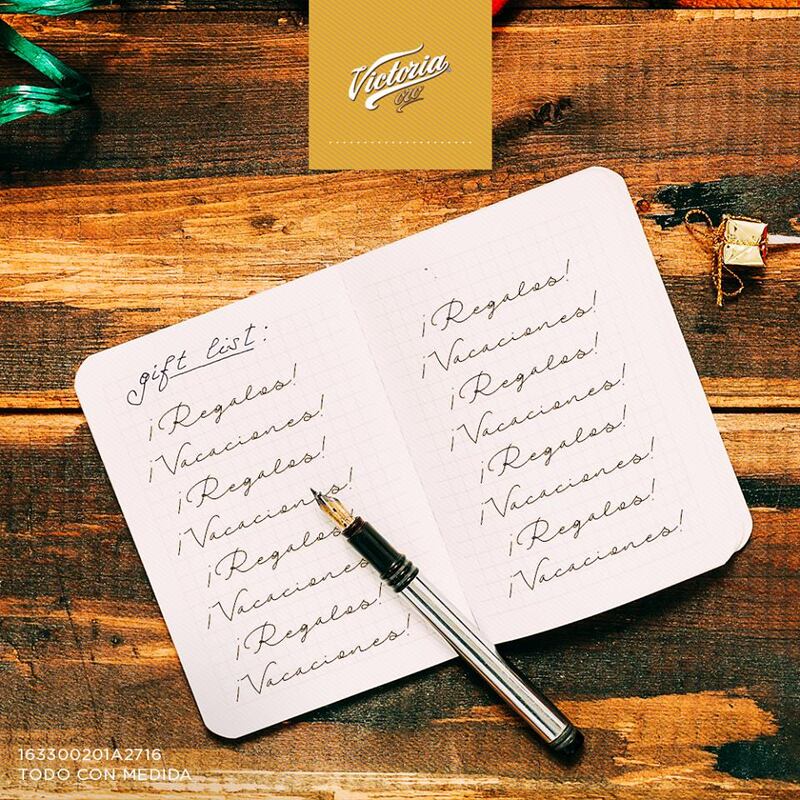 Victoria
oro
gift list:
¡Regalos!
¡Vacaciones!
¡Regalos!
¡Vacaciones!
¡Regalos!
¡Vacaciones
¡Regalos!
¡Vacaciones!
¡Regalos!
¡Vacaciones!
¡Regalos!
¡Vacaciones!
¡Regalos!
¡Vacaciones!
¡Regalos!
¡Vacaciones!
163300201A2716
TODO CON MEDIDA